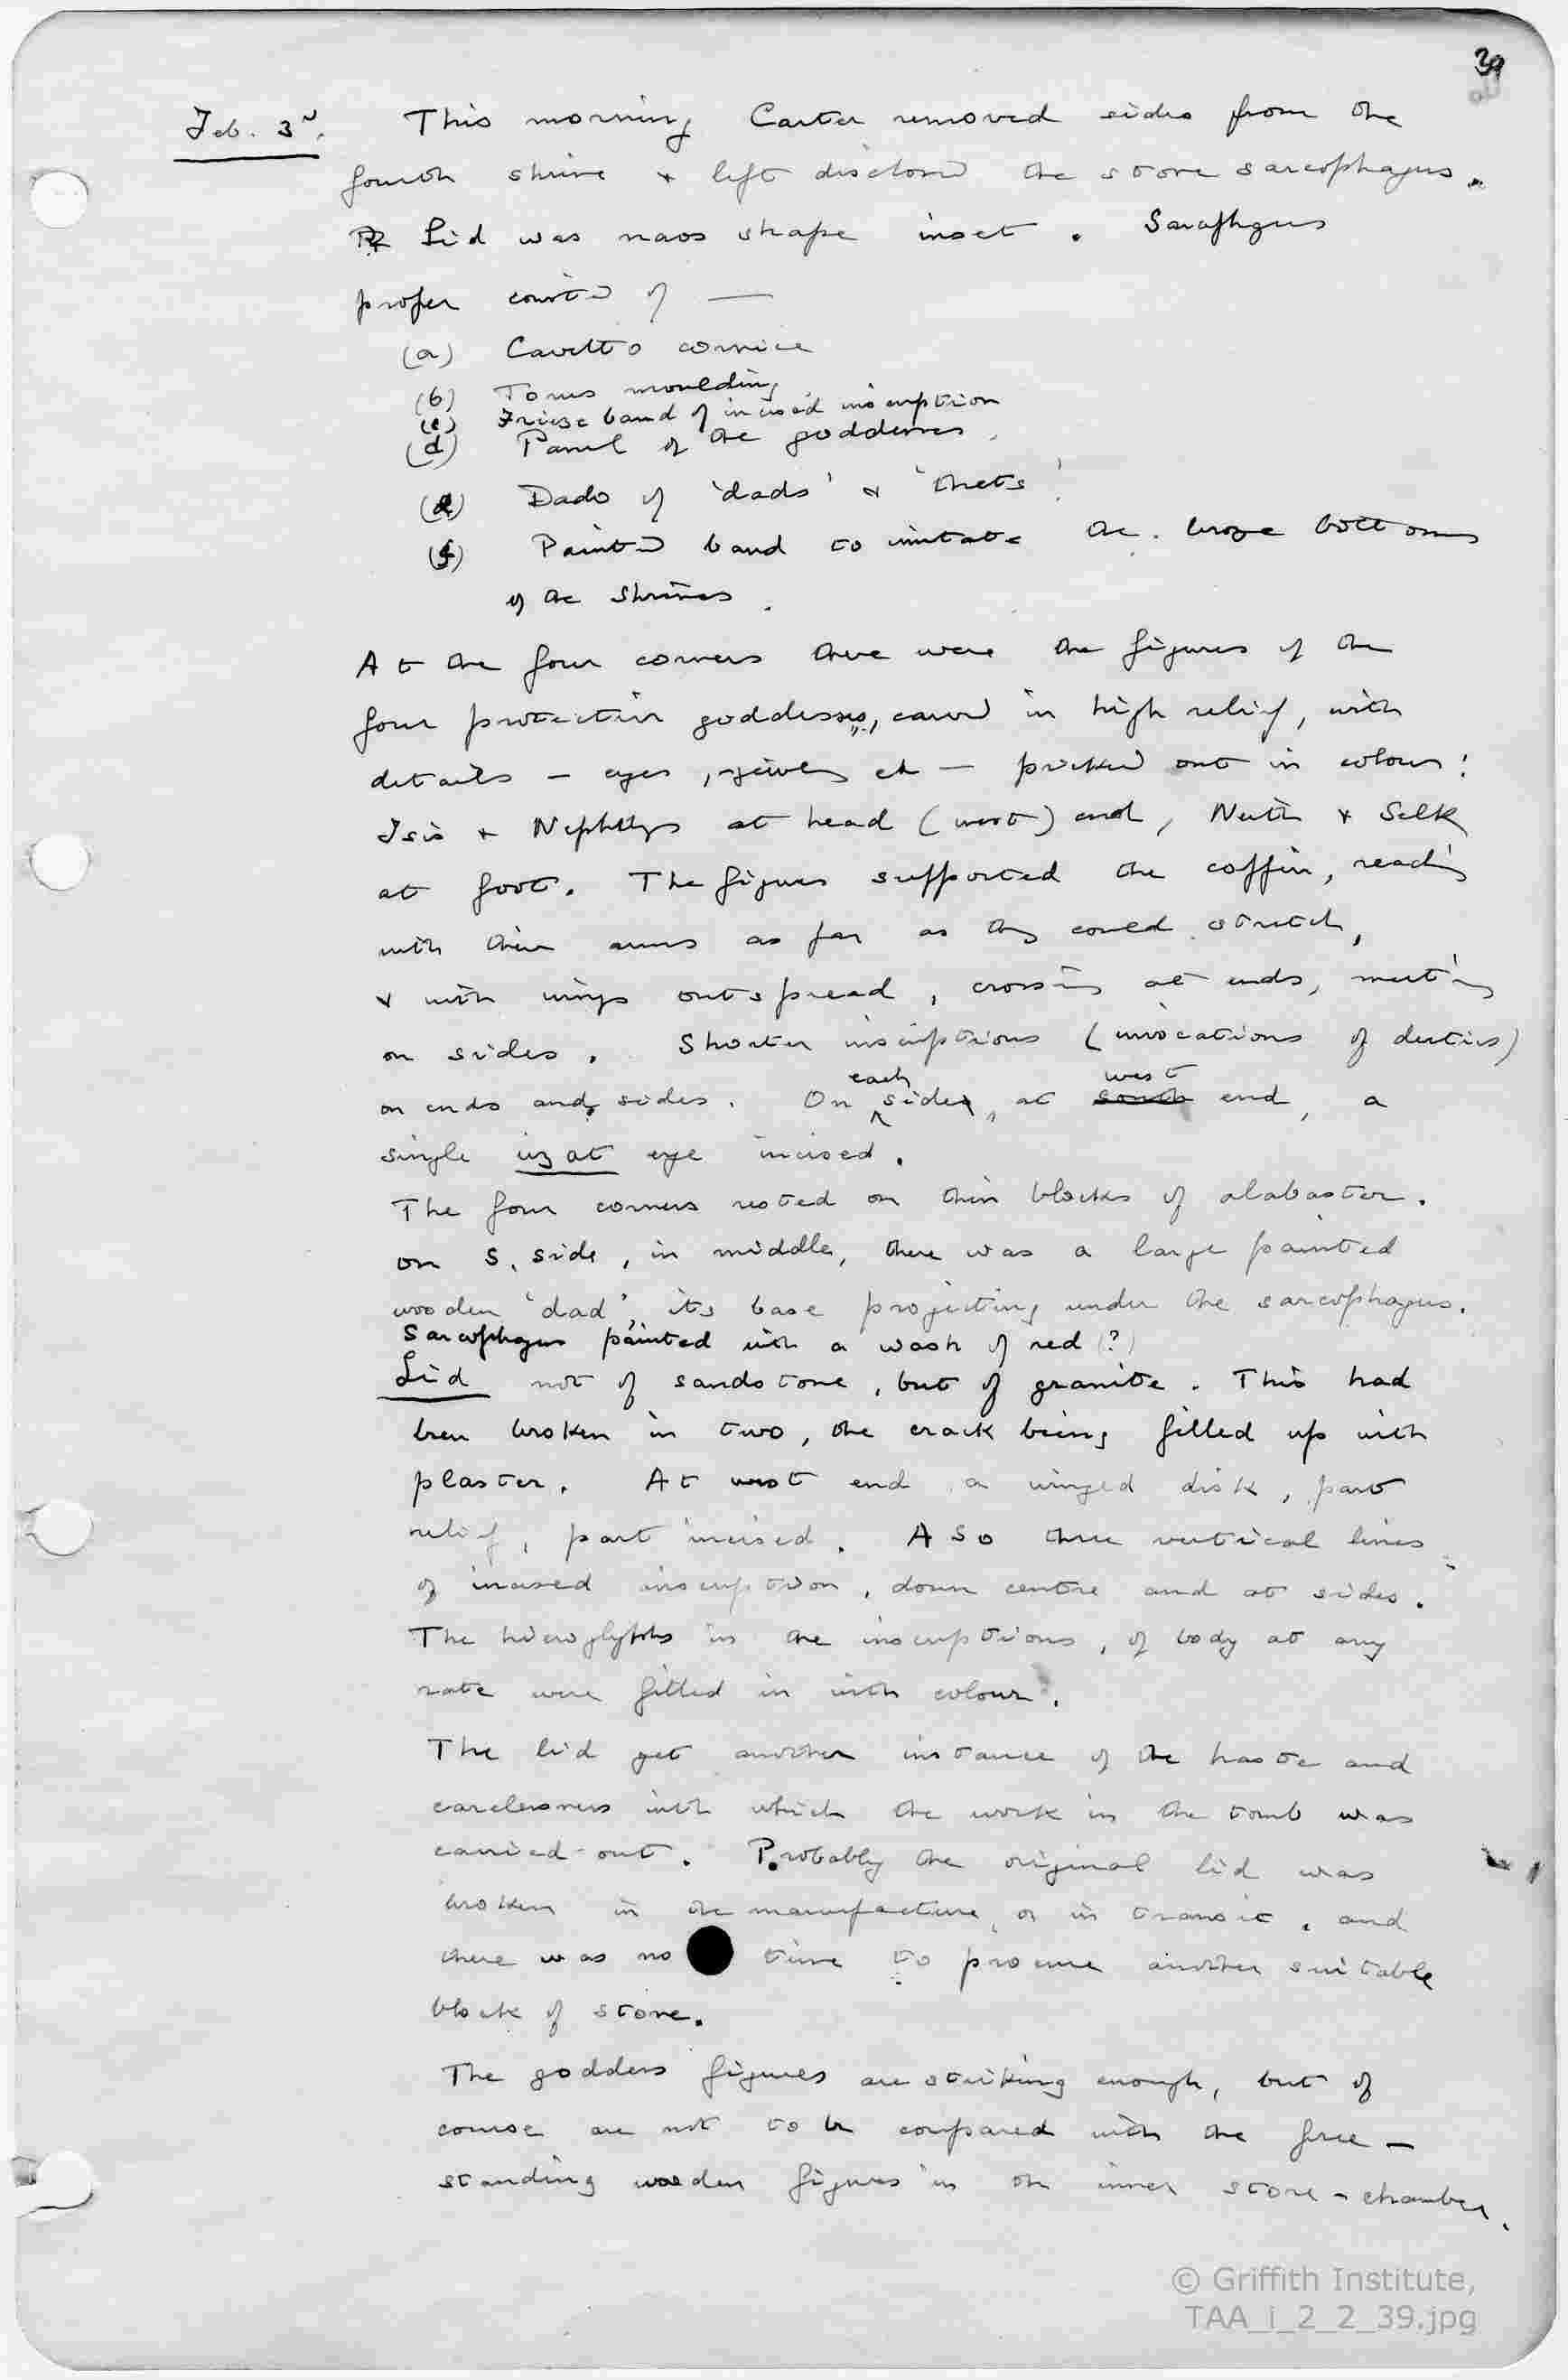 39
Feb. 3rd. This morning Carter removed sides from the
fourth shrine & left disclosed the stone sarcophagus.
Lid was naos shape inset. Sarcophagus
proper consisted of —
(a) Cavetto cornice
(b) Torus moulding
(c) Frieze band of incised inscription
(d) Panel of the goddesses.
(e) Dado of 'dads' & 'thets'
(f) Painted band to imitate the broze bottoms
of the shrines.
At the four corners there were the figures of the
four protecting goddesses, carved in high relief, with
details – eyes, jewels etc – picked out in colour:
Isis & Nephthys at head (west) end, Neith & Selk
at foot. The figures supported the coffin, reaching
with their arms as far as they could stretch,
& with wings outspread, crossing at ends, meeting
on sides. Shorter inscriptions (invocations of deities)
on ends and sides. On each side, at south west end, a
single uzat eye incised.
The four corners rested on thin blocks of alabaster.
on S. side, in middle, there was a large painted
wooden 'dad', its base projecting under the sarcophagus.
Sarcophagus painted with a wash of red (?)
Lid not of sandstone, but of granite. This had
been broken in two, the crack being filled up with
plaster. At west end a winged disk, part
relief, part incised. Also three vertical lines
of incised inscription, down centre and at sides.
The hieroglyphs in the inscriptions, of body at any
rate were filled in with colour.
The lid yet another instance of the haste and
carelessness with which the work in the tomb was
carried out. Probably the original lid was
broken in the manufacture, or in transit, and
there was no time to procure another suitable
block of stone.
The goddess figures are striking enough, but of
course are not to be compared with the free-
standing wooden figures in the inner store-chamber.
© Griffith Institute,
TAA_i_2_2_39.jpg